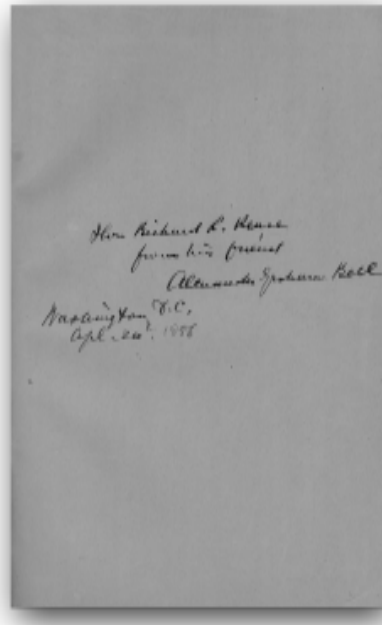 Hon Richard R.
from his friend
Alexander Graham Bell
Washington D.C.
Apl.